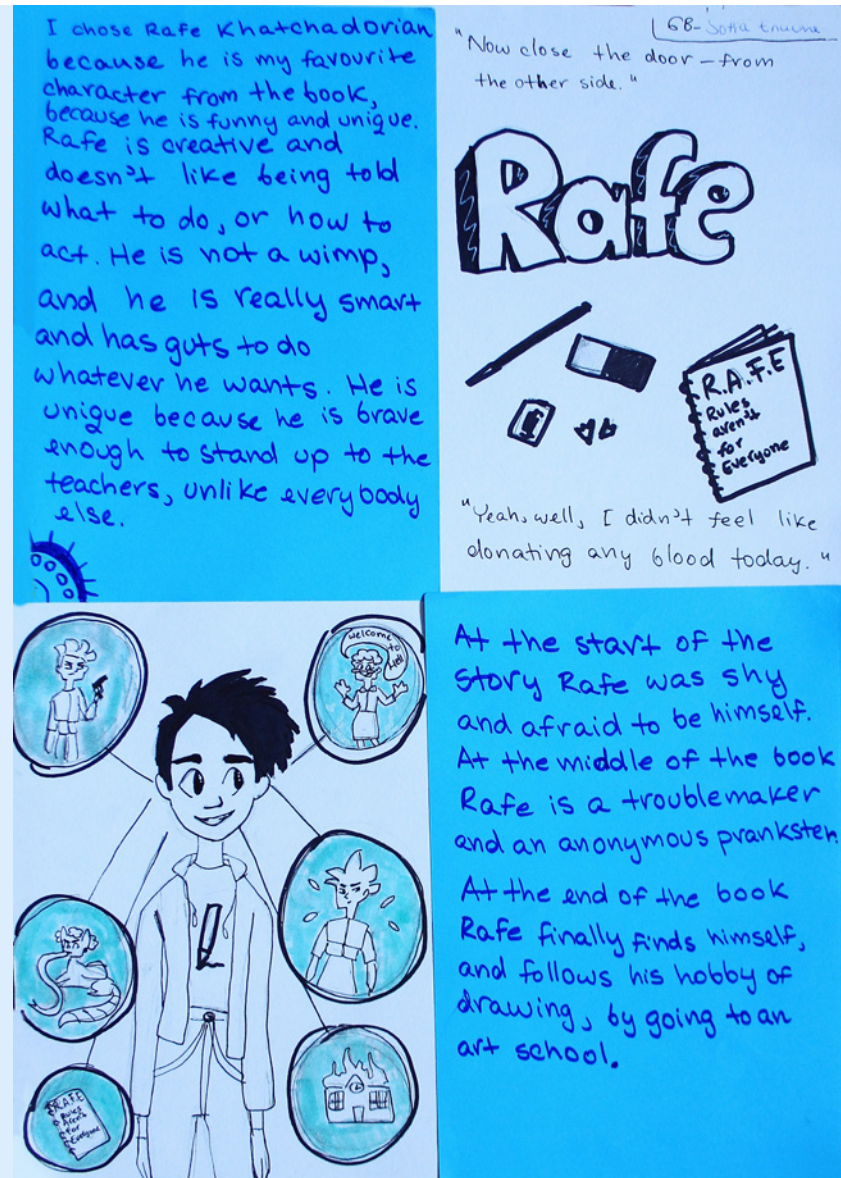 I chose Rafe Khatchadorian
because he is my favourite
character from the book,
because he is funny and unique.
Rafe is creative and
doesn't like being told
what to do, or how to
act. He is not a wimp,
and he is really smart
and has guts to do
whatever he wants. He is
unique because he is brave
enough to stand up to the
teachers, unlike everybody
else.
6B-
"Now close the door - from
the other side."
Rafe
R.A.F.E
Rules
aren't
for
Everyone
"Yeah, well, I didn't feel like
donating any blood today."
welcome
to
Hell
R.A.F.E
Rules
Aren't
for
Everyone
At the start of the
story Rafe was shy
and afraid to be himself.
At the middle of the book
Rafe is a troublemaker
and an anonymous prankster.
At the end of the book
Rafe finally finds himself,
and follows his hobby of
drawing, by going to an
art school.